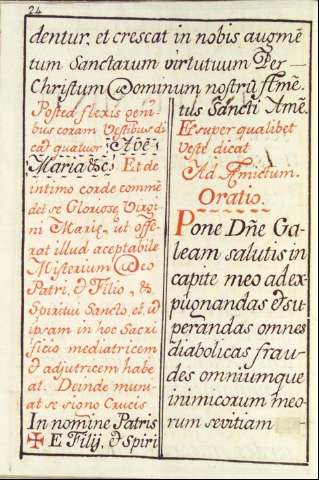 24
dentur, et crescat in nobis augmẽ
tum Sanctarum virtutuum Per
Christum Dominum nostrũ Amẽ.
Postea flexis geni⸗
bus coram Vestibus di
cat quatuor Ave
Maria &c. Et de
intimo corde commẽ
det se Gloriosę Virgi
ni Marię, ut offe⸗
rat illud aceptabile
Misterium Deo
Patri, & Filio, &
Spiritui Sancto, et, ut
ipsam in hoc Sacri
ficio mediatricem
& adjutricem habe
at. Deinde muni⸗
at se signo Crucis
In nomine Patris
✠ E Filij, & Spiri
tus Sancti Amẽ.
Et super qualibet
Veste dicat
Ad Amictum.
Oratio.
Pone Dñe Ga⸗
leam salutis in
capite meo ad ex⸗
pugnandas & su⸗
perandas omnes
diabolicas frau⸗
des omniumque
inimicorum meo⸗
rum sevitiam